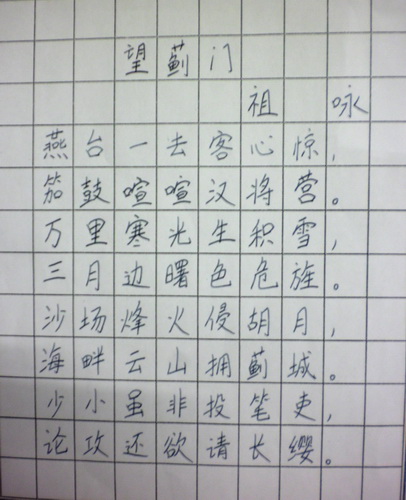 望蓟门
祖咏
燕台一去客心惊，
笳鼓喧喧汉将营。
万里寒光生积雪，
三月边曙色危旌。
沙场烽火侵胡月，
海畔云山拥蓟城。
少小虽非投笔吏，
论攻还欲请长缨。